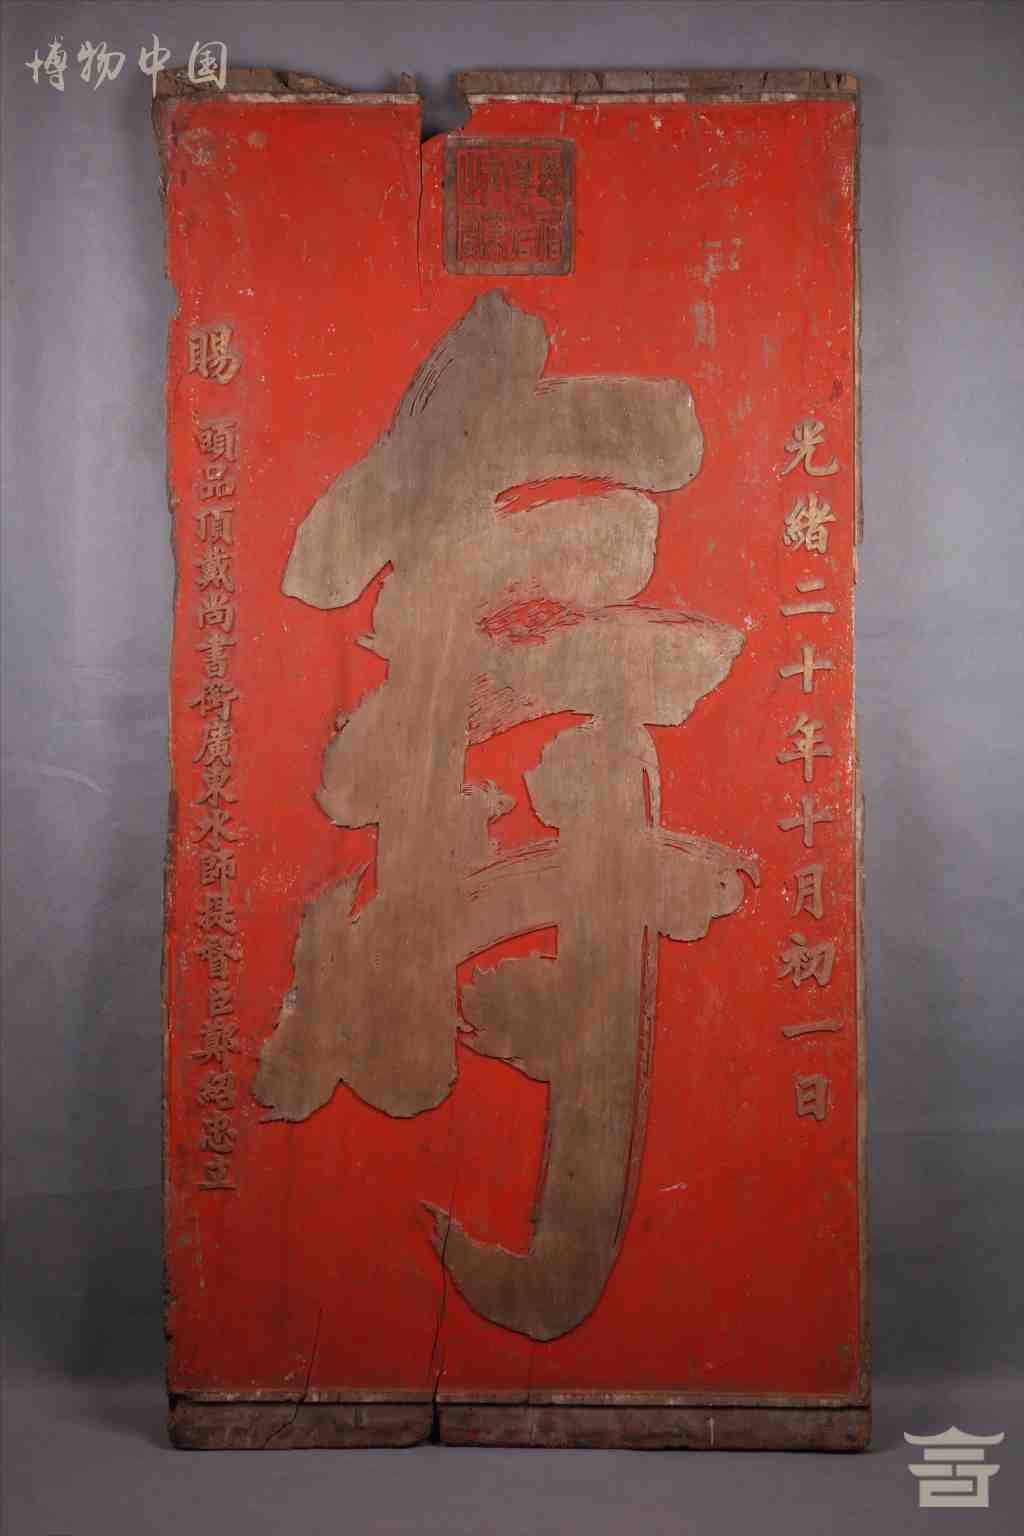 博物中国
光緒二十年十月初一日
壽
賜
頭品頂戴尚書銜廣東水師提督臣鄭紹忠立